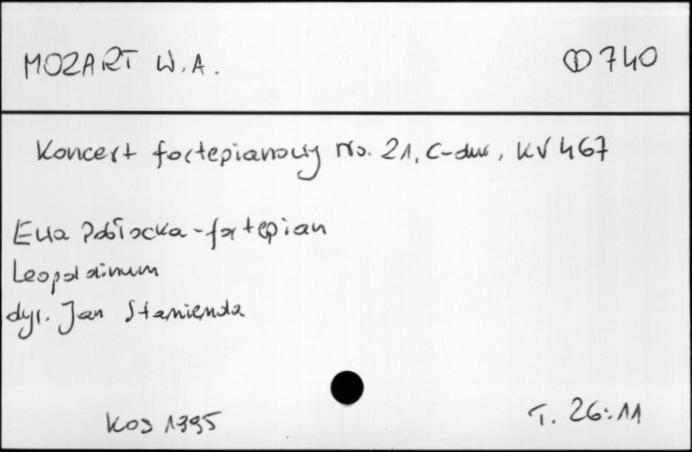 MOZART W.A. ① 740
Koncert fortepianowy No. 21, C-dur, KV 467
Ewa Pobłocka - fortepian
Leopoldinum
dyr. Jan Stanienda
Kos 1995 T. 26:11